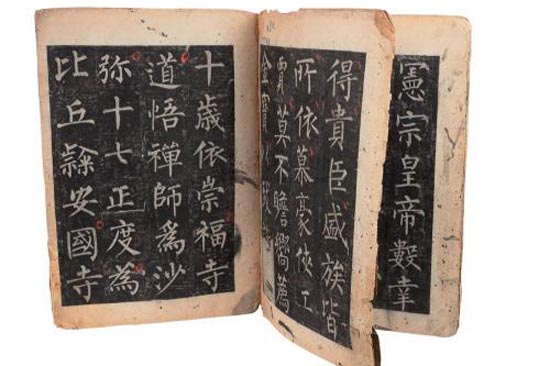 憲宗皇帝數幸
得貴臣盛族皆
所依慕豪俠工
賈莫不瞻嚮薦
金寶
十歲依崇福寺
道悟禪師爲沙
弥十七正度為
比丘隸安國寺